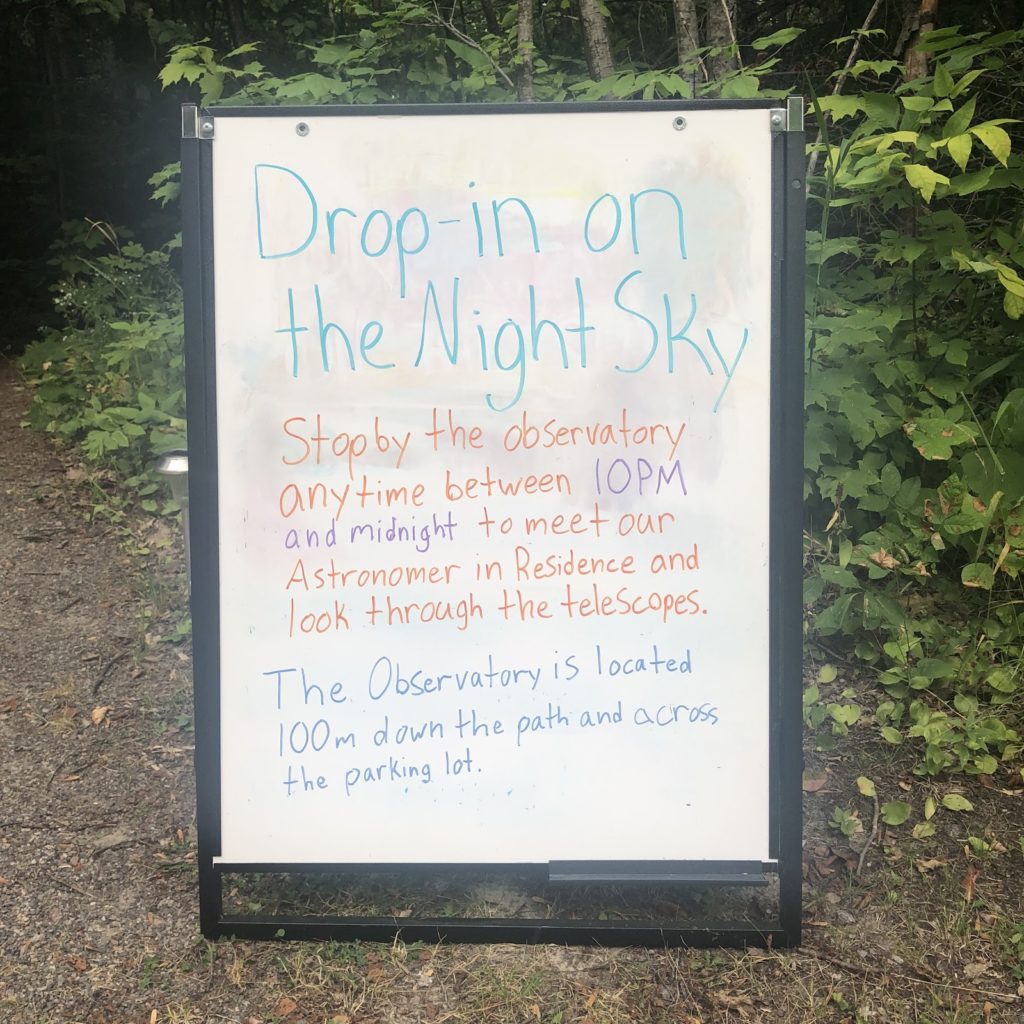 Drop-in on
the Night Sky
Stop by the observatory
anytime between 10PM
and midnight to meet our
Astronomer in Residence and
look through the telescopes.
The Observatory is located
100m down the path and across
the parking lot.